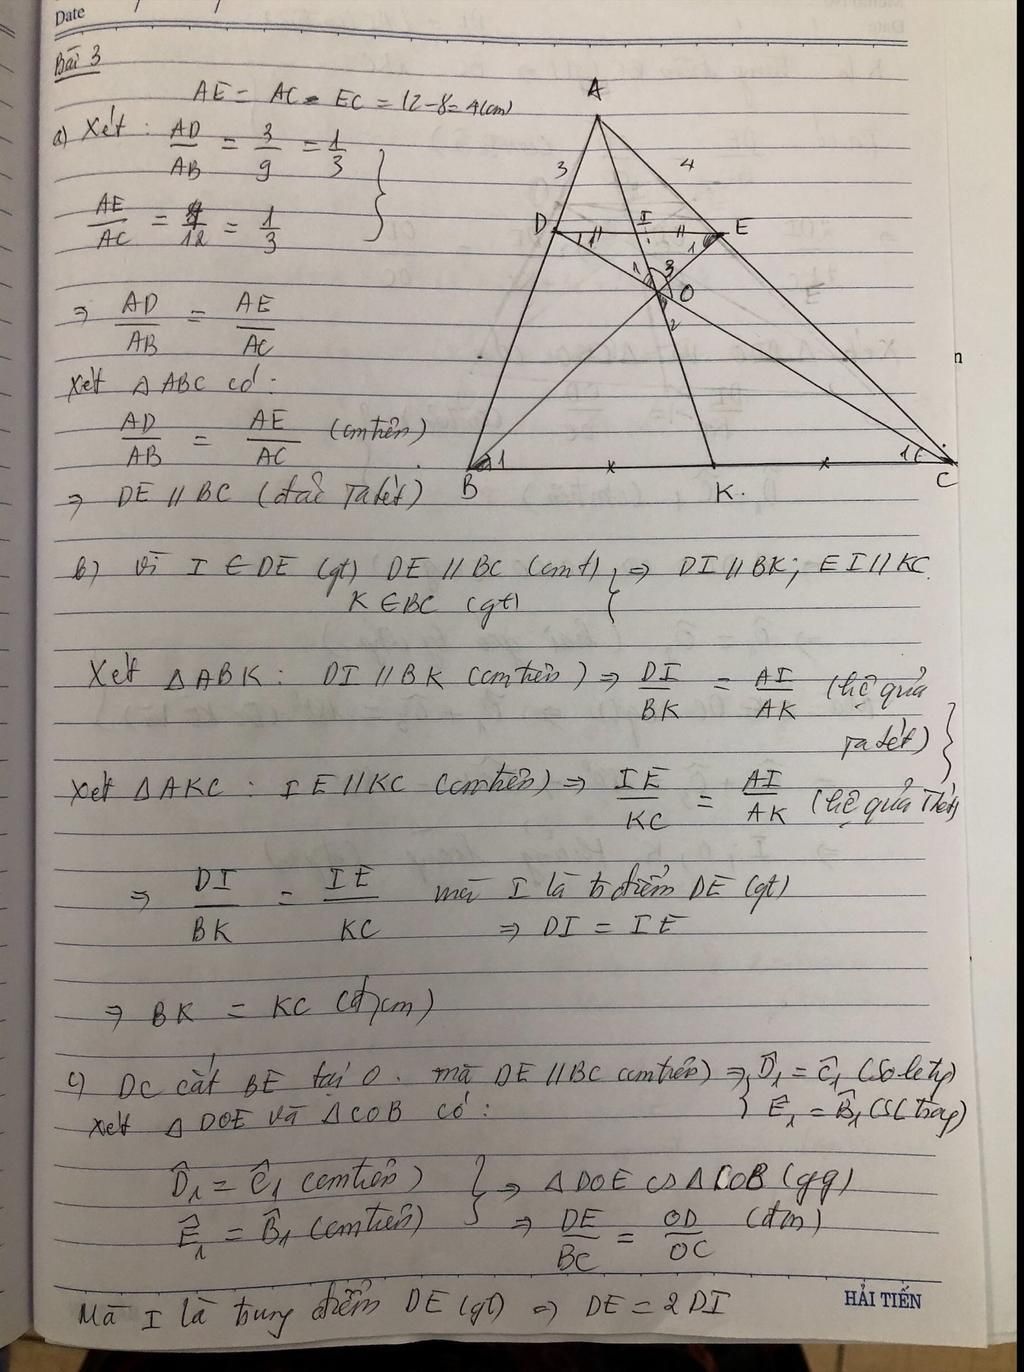 Date
Bài 3
AE = AC - EC = 12 - 8 = 4 (cm)
a) Xét : AD/AB = 3/9 = 1/3
AE/AC = 4/12 = 1/3
⇒ AD/AB = AE/AC
Xét Δ ABC có :
AD/AB = AE/AC (cm trên)
⇒ DE // BC (đảo Ta lét)
A
3
4
D
I
E
1
1
1
3
O
2
1
1
B
K
C
b) Vì I ∈ DE (gt) DE // BC (cmt) } ⇒ DI // BK ; EI // KC
K ∈ BC (gt)
Xét Δ ABK : DI // BK (cm trên) ⇒ DI/BK = AI/AK (hệ quả
Ta lét)
Xét Δ AKC : IE // KC (cm trên) ⇒ IE/KC = AI/AK (hệ quả Tlét)
⇒ DI/BK = IE/KC mà I là tr điểm DE (gt)
⇒ DI = IE
⇒ BK = KC (đpcm)
c) DC cắt BE tại O . mà DE // BC (cm trên) ⇒ D̂1 = Ĉ1 (so le tr)
Xét Δ DOE và Δ COB có : Ê1 = B̂1 (SL trog)
D̂1 = Ĉ1 (cm trên) } ⇒ Δ DOE ∽ Δ COB (gg)
Ê1 = B̂1 (cm trên) ⇒ DE/BC = OD/OC (đn)
Mà I là trung điểm DE (gt) ⇒ DE = 2 DI
HẢI TIẾN